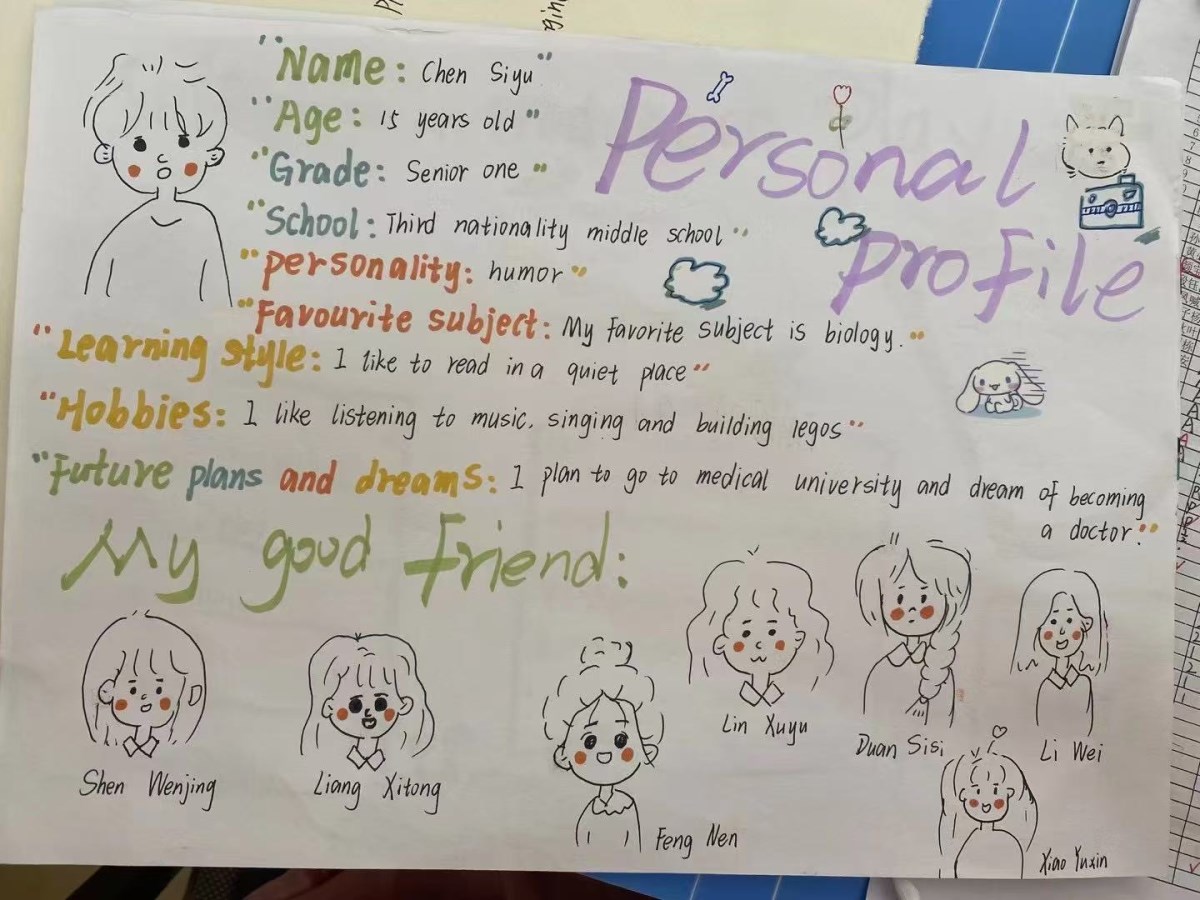 "Name: Chen Siyu"
"Age: 15 years old"
"Grade: Senior one"
"School: Third nationality middle school"
"personality: humor"
"Favourite subject: My Favorite subject is biology."
"Learning style: I like to read in a quiet place"
"Hobbies: I like listening to music. singing and building legos"
"Future plans and dreams: I plan to go to medical university and dream of becoming
a doctor."
Personal
Profile
My good friend:
Shen Wenjing
Liang Xitong
Feng Nen
Lin Xuyu
Duan Sisi
Li Wei
Xiao Yuxin